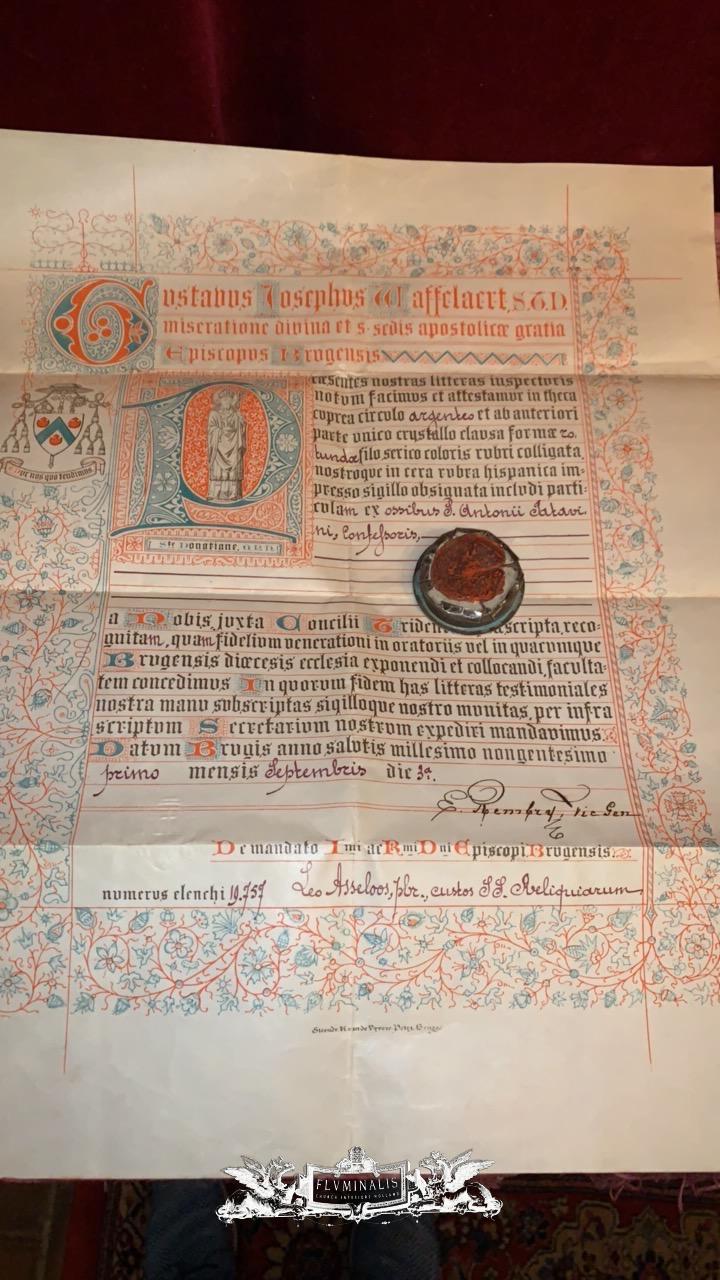 Gustavus Josephus Waffelaert, S.T.D.
miseratione divina et s. sedis apostolicæ gratia
Episcopus Brugensis
Præsentes nostras litteras inspecturis
notum facimus et attestamur in theca
cuprea circulo argenteo et ab anteriori
parte unico crystallo clausa formæ ro-
tundæ filo serico coloris rubri colligata,
nostroque in cera rubra hispanica im-
presso sigillo obsignata includi parti-
culam ex ossibus S. Antonii Patavi-
ni, Confessoris,
quo nos quo tendimus
Sts Donatiane, O.P.N.
a Nobis, juxta Concilii Triden scripta, reco-
gnitam, quam fidelium venerationi in oratoriis vel in quacumque
Brugensis diœcesis ecclesia exponendi et collocandi, faculta-
tem concedimus In quorum fidem has litteras testimoniales
nostra manu subscriptas sigilloque nostro munitas, per infra
scriptum Secretarium nostrum expediri mandavimus.
Datum Brugis anno salutis millesimo nongentesimo
primo mensis Septembris die 3a.
E. Rembry, Vic Gen
De mandato Imi ac Rmi Dni Episcopi Brugensis.
numerus elenchi 19.757 Leo Asseloos, pbr., custos SS. Reliquiarum
Brugge
FLVMINALIS
CHURCH INTERIORS HOLLAND